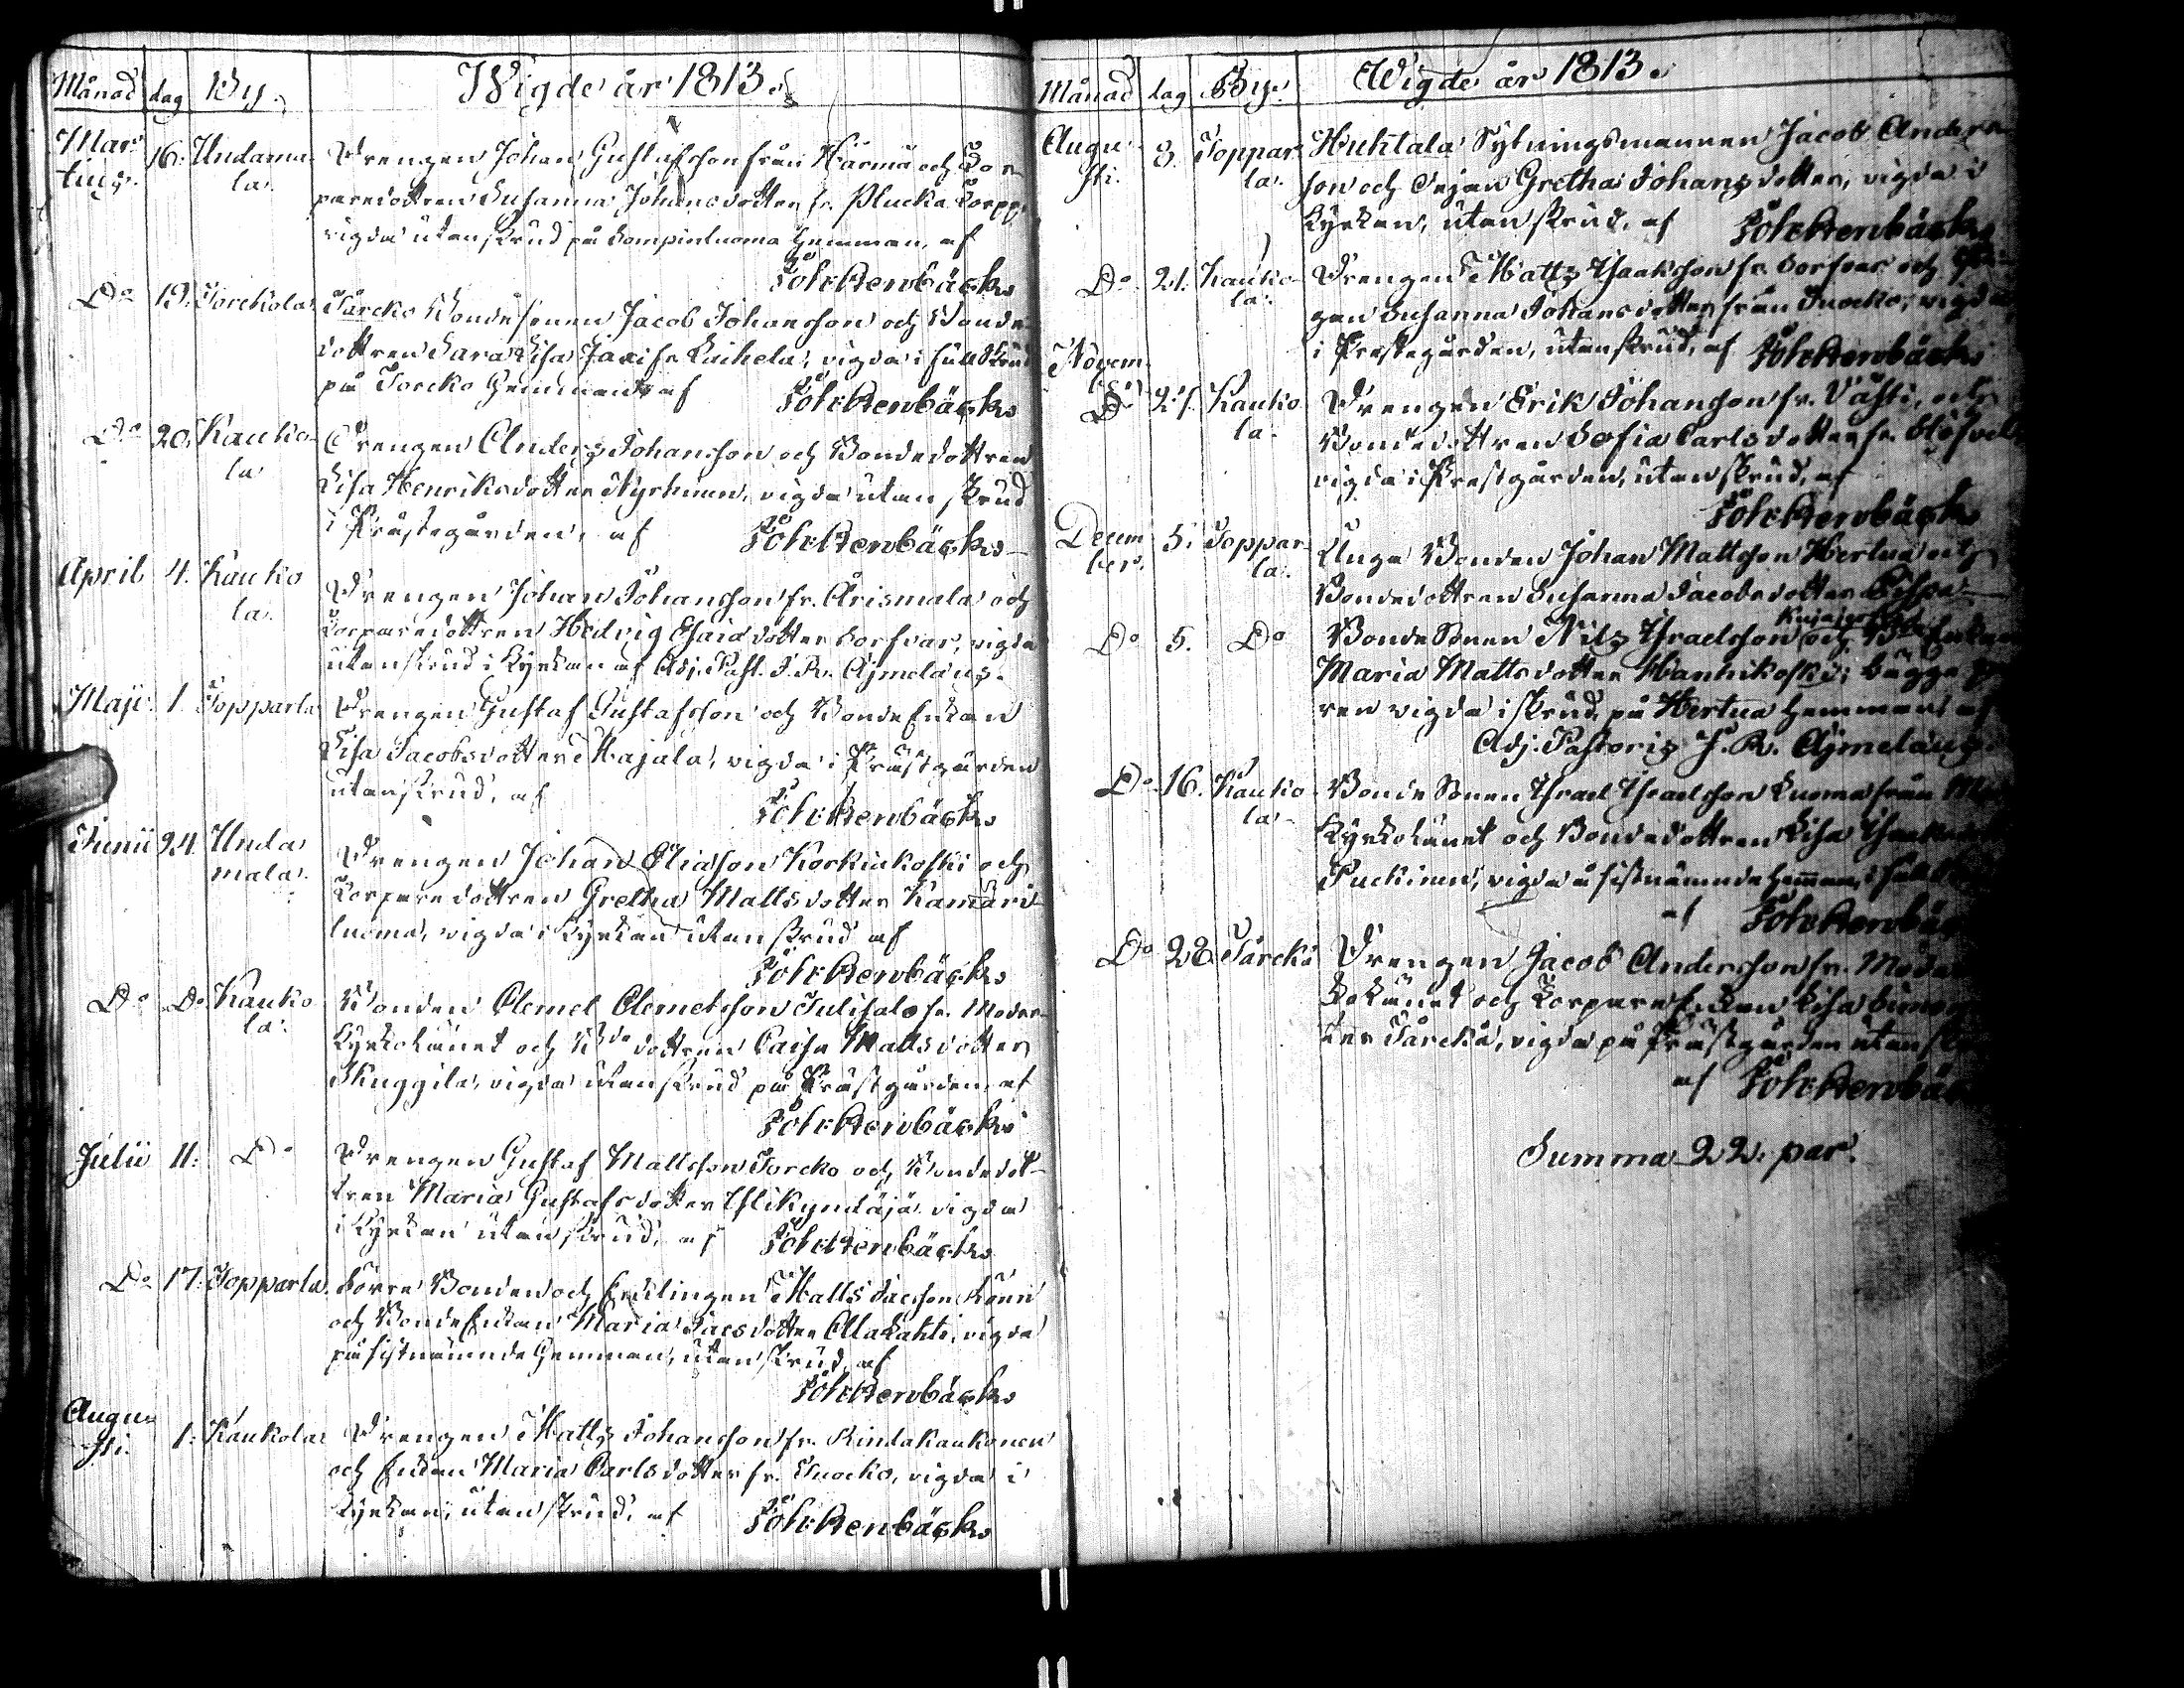 Månad dag By. Wigde år 1813.
Mar-
tius. 16. Undama-
la. Drengen Johan Gustafsson från Härmä och Tor-
paredottren Susanna Johansdotter fr. Plucka Torpp,
vigda utan skrud på hemman, af
Fölckenbäck.
Do 19. Jorckola. Järcko Bondesonen Jacob Johansson och Bonde
dottren Sara Lisa Jaxi fr. Laihela, vigda i full skrud
på Jorcko Hemman af Fölckenbäck
Do 20. Kauko-
la Drengen Anders Johansson och Bondedottren
Lisa Henriksdotter Nyrhinen, vigda utan skrud
i Prästegården, af Fölckenbäck
April 4. Kauko
la. Drengen Johan Johansson fr. Arismala och
Torparedottren Hedvig Esaiadotter Sorfvar, vigda
utan skrud i Kyrkan af Adj. Past. J. R. Ajmelæus.
Maji 1. Topparla Drengen Gustaf Gustafsson och Bonde Enkan
Lisa Jacobsdotter Majala, vigda i Prästgården
utan skrud, af Fölckenbäck
Junii 24. Unda
mala. Drengen Johan Eliasson Korkiakoski och
Torparedottren Gretha Mattsdotter Kamari-
luoma, vigda i Kyrkan utan skrud af
Fölckenbäck
Do Do Kauko
la. Bonden Clemet Clemetsson Julisalo fr. Moder-
kyrkolänet och Bde dottren Caisa Mattsdotter
Skuggila, vigda utan skrud på Prästgården, af
Fölckenbäck
Julii 11. Do Drengen Gustaf Mattsson Jorcko och Bondedot-
tren Maria Gustafsdotter Ylikyndäjä vigda
i Kyrkan utan skrud, af Fölckenbäck
Do 17. Topparla. Förre Bonden och Enklingen Matts Jacsson Könni
och Bonde Enkan Maria Jacsdotter Alalahti, vigda
på sistnämnde Hemman, utan skrud, af
Fölckenbäck
Augu-
sti. 1. Kaukola Drengen Matts Johansson fr. Rindakaukonen
och Enkan Maria Carlsdotter fr. Tuocko, vigda i
Kyrkan, utan skrud, af Fölckenbäck
Månad dag By. Wigde år 1813.
Augu-
sti. 8. Toppar-
la. Huhtala Sytningsmannen Jacob Anders
son och Pejan Gretha Johansdotter, vigda i
Kyrkan, utan skrud, af Fölckenbäck
Do 21. Kauko-
la. Drengen Matts Isaksson fr. Sorfvar och
gan Susanna Johansdotter från Tuocko, vigda
i Prestegården, utan skrud, af Fölckenbäck
Novem-
ber 21. Kauko
la. Drengen Erik Johansson fr. Västi, och
Bondedottren Sofia Carlsdotter fr.
vigda i Prestgården, utan skrud, af
Fölckenbäck
Decem
ber. 5. Toppar-
la. Unga Bonden Johan Mattsson Hertua och
Bondedottren Susanna Jacobsdotter
Do 5. Do Bonde Sonen Nils Israelsson och Bde Enkan
Maria Mattsdotter Hanhikoski; bägge pa
ren vigda i skrud på Hertua Hemman af
Adj. Pastoris J. R. Ajmelæus.
Do 16. Kauko
la. Bonde Sonen Israel Israelsson Luoma från
Kyrkolänet och Bondedottren Lisa
Puckinen, vigda å sistnämnde Hemman, i full
af Fölckenbäck
Do 28. Järckä Drengen Jacob Andersson fr. Moder
kolänet och Torpare Enkan Lisa
ter Järckä, vigda på Prästgården utan
af Fölckenbäck
Summa 22. par.